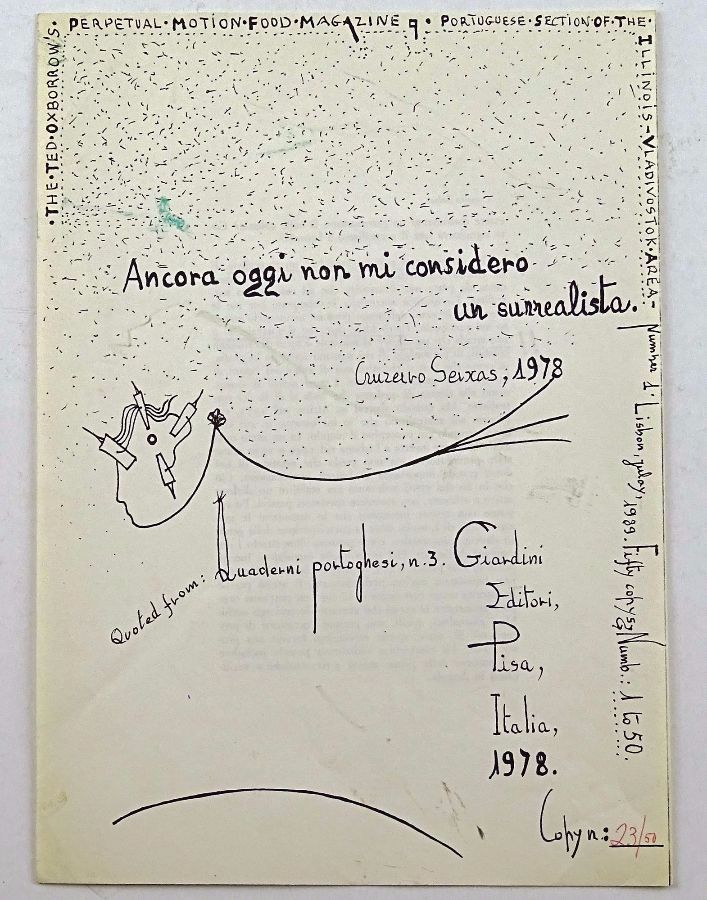 ·THE·TED·OXBORROW'S·
PERPETUAL·MOTION·FOOD·MAGAZINE 9·PORTUGUESE·SECTION·OF·THE·
ILLINOIS-VLADIVOSTOK·AREA-
Number 1. Lisbon, julay, 1989. Fifty copys, Numb.: 1 to 50.
Ancora oggi non mi considero
un surrealista.
Cruzeiro Seixas, 1978
Quoted from: Quaderni portoghesi, n.3. Giardini
Editori,
Pisa,
Italia,
1978.
Copy n.: 23/50